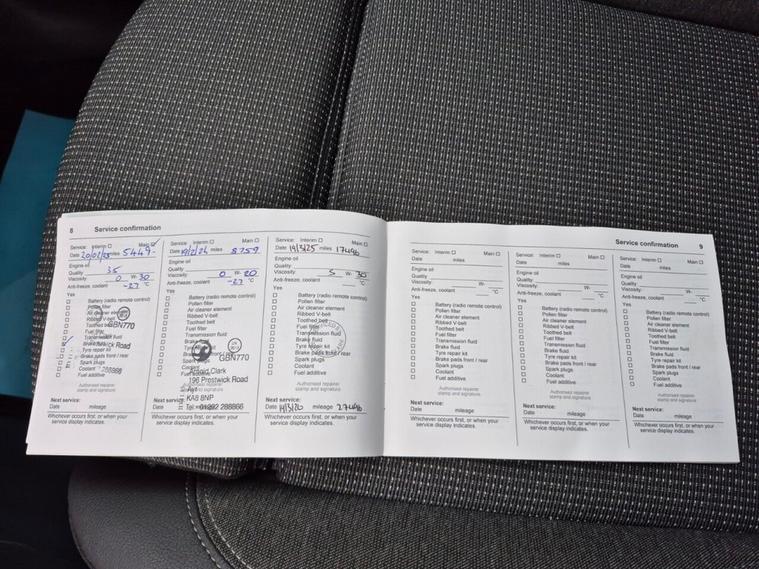 8 Service confirmation
Service: Interim ☐ Main ☑
Date 20/02/23 miles 5449
Engine oil
Quality 35
Viscosity 0 W- 30
Anti-freeze, coolant -27 °C
Yes
☐ Battery (radio remote control)
☐ Pollen filter
☐ Air cleaner element
☐ Ribbed V-belt
☐ Toothed belt GBN770
☐ Fuel filter
Transmission fluid
Brake fluid
☐ Tyre repair kit
Brake pads front / rear
☐ Spark plugs
☐ Coolant 288866
☐ Fuel additive
Authorised repairer
stamp and signature
Next service:
Date mileage
Whichever occurs first, or when your
service display indicates.
Service: Interim ☐ Main ☐
Date miles 8759
Engine oil
Quality
Viscosity 0 W- 20
Anti-freeze, coolant -27 °C
Yes
☐ Battery (radio remote control)
☐ Pollen filter
☐ Air cleaner element
☐ Ribbed V-belt
☐ Toothed belt
☐ Fuel filter
☐ Transmission fluid
GBN770
Arnold Clark
196 Prestwick Road
Ayr
KA8 8NP
Tel: 01292 288866
Next service:
Date mileage
Whichever occurs first, or when your
service display indicates.
Service: Interim ☐ Main ☐
Date 14/3/25 miles 17496
Engine oil
Quality
Viscosity 5 W- 30
Anti-freeze, coolant °C
Yes
☐ Battery (radio remote control)
☐ Pollen filter
☐ Air cleaner element
☐ Ribbed V-belt
☐ Toothed belt
☐ Fuel filter
☐ Transmission fluid
☐ Brake fluid
☐ Tyre repair kit
☐ Brake pads front / rear
☐ Spark plugs
☐ Coolant
☐ Fuel additive
Authorised repairer
stamp and signature
Next service:
Date 14/3/26 mileage 27496
Whichever occurs first, or when your
service display indicates.
Service confirmation 9
Service: Interim ☐ Main ☐
Date miles
Engine oil
Quality
Viscosity W-
Anti-freeze, coolant °C
Yes
☐ Battery (radio remote control)
☐ Pollen filter
☐ Air cleaner element
☐ Ribbed V-belt
☐ Toothed belt
☐ Fuel filter
☐ Transmission fluid
☐ Brake fluid
☐ Tyre repair kit
☐ Brake pads front / rear
☐ Spark plugs
☐ Coolant
☐ Fuel additive
Authorised repairer
stamp and signature
Next service:
Date mileage
Whichever occurs first, or when your
service display indicates.
Service: Interim ☐ Main ☐
Date miles
Engine oil
Quality
Viscosity W-
Anti-freeze, coolant °C
Yes
☐ Battery (radio remote control)
☐ Pollen filter
☐ Air cleaner element
☐ Ribbed V-belt
☐ Toothed belt
☐ Fuel filter
☐ Transmission fluid
☐ Brake fluid
☐ Tyre repair kit
☐ Brake pads front / rear
☐ Spark plugs
☐ Coolant
☐ Fuel additive
Authorised repairer
stamp and signature
Next service:
Date mileage
Whichever occurs first, or when your
service display indicates.
Service: Interim ☐ Main ☐
Date miles
Engine oil
Quality
Viscosity W-
Anti-freeze, coolant °C
Yes
☐ Battery (radio remote control)
☐ Pollen filter
☐ Air cleaner element
☐ Ribbed V-belt
☐ Toothed belt
☐ Fuel filter
☐ Transmission fluid
☐ Brake fluid
☐ Tyre repair kit
☐ Brake pads front / rear
☐ Spark plugs
☐ Coolant
☐ Fuel additive
Authorised repairer
stamp and signature
Next service:
Date mileage
Whichever occurs first, or when your
service display indicates.